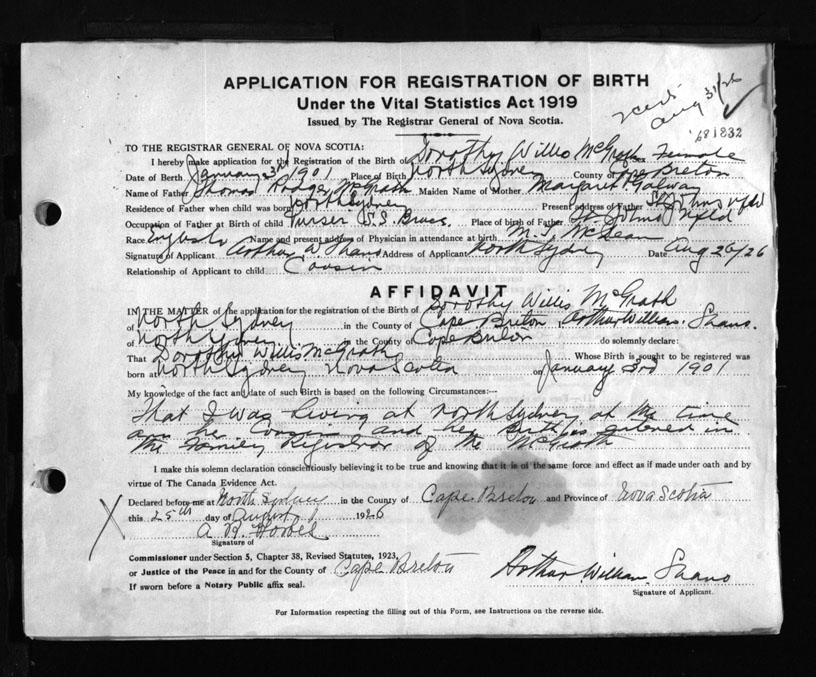 APPLICATION FOR REGISTRATION OF BIRTH
Under the Vital Statistics Act 1919
Issued by The Registrar General of Nova Scotia.
Aug 31/26
681832
TO THE REGISTRAR GENERAL OF NOVA SCOTIA:
I hereby make application for the Registration of the Birth of Dorothy Willis McGrath Female
Date of Birth January 3rd 1901 Place of Birth North Sydney County of Cape Breton
Name of Father Thomas McGrath Maiden Name of Mother Margaret Galway
Residence of Father when child was born North Sydney Present address of Father St Johns Nfld
Occupation of Father at Birth of child Purser S.S. Bruce. Place of birth of Father St. Johns Nfld
Race English Name and present address of Physician in attendance at birth M. McLean
Signature of Applicant Arthur W. Shano Address of Applicant North Sydney Date Aug 26/26
Relationship of Applicant to child Cousin
AFFIDAVIT
IN THE MATTER of the application for the registration of the Birth of Dorothy Willis McGrath
of North Sydney in the County of Cape Breton, Arthur William Shano.
of North Sydney in the County of Cape Breton do solemnly declare:
That Dorothy Willis McGrath Whose Birth is sought to be registered was
born at North Sydney Nova Scotia on January 3rd 1901
My knowledge of the fact and date of such Birth is based on the following Circumstances:—
That I was living at North Sydney at the time
am her Cousin and her Birth is entered in
the Family Register of the McGrath
I make this solemn declaration conscientiously believing it to be true and knowing that it is of the same force and effect as if made under oath and by
virtue of The Canada Evidence Act.
Declared before me at North Sydney in the County of Cape Breton and Province of Nova Scotia
this 25th day of August 1926
Signature of
Commissioner under Section 5, Chapter 38, Revised Statutes, 1923,
or Justice of the Peace in and for the County of Cape Breton
If sworn before a Notary Public affix seal.
Arthur William Shano
Signature of Applicant.
For Information respecting the filling out of this Form, see Instructions on the reverse side.